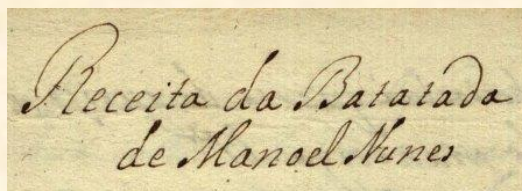 Receita da Batatada
de Manoel Nunes